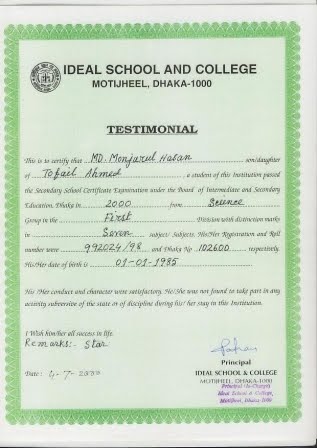 IDEAL SCHOOL AND COLLEGE
MOTIJHEEL, DHAKA-1000
TESTIMONIAL
This is to certify that MD. Monjarul Hasan son/daughter
of Tofail Ahmed, a student of this Institution passed
the Secondary School Certificate Examination under the Board of Intermediate and Secondary
Education, Dhaka in 2000 from Science
Group in the First Division with distinction marks
in Seven subject/ Subjects. His/Her Registration and Roll
number were 992024/98 and Dhaka No 102600 respectively.
His/Her date of birth is 01-01-1985
His /Her conduct and character were satisfactory. He/She was not found to take part in any
activity subversive of the state or of discipline during his/ her stay in this Institution.
I Wish him/her all success in life.
Remarks:- Star
Date : 4-7-2000
Principal
IDEAL SCHOOL & COLLEGE
MOTIJHEEL, DHAKA-1000
Principal (In-Charge)
Ideal School & College,
Motijheel, Dhaka-1000